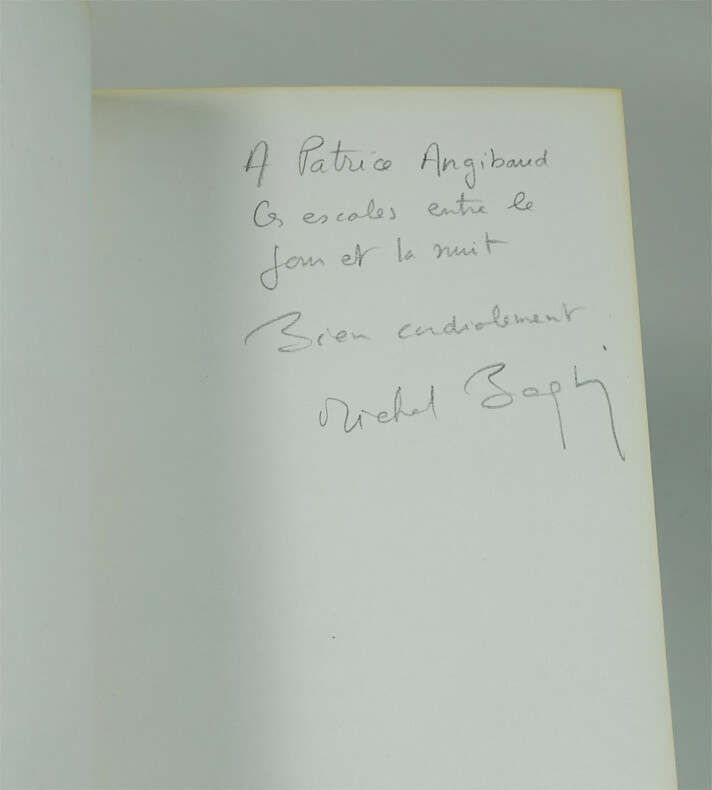 A Patrice Angibaud
Ces escales entre le
jour et la nuit
Bien cordialement
Michel Baglin